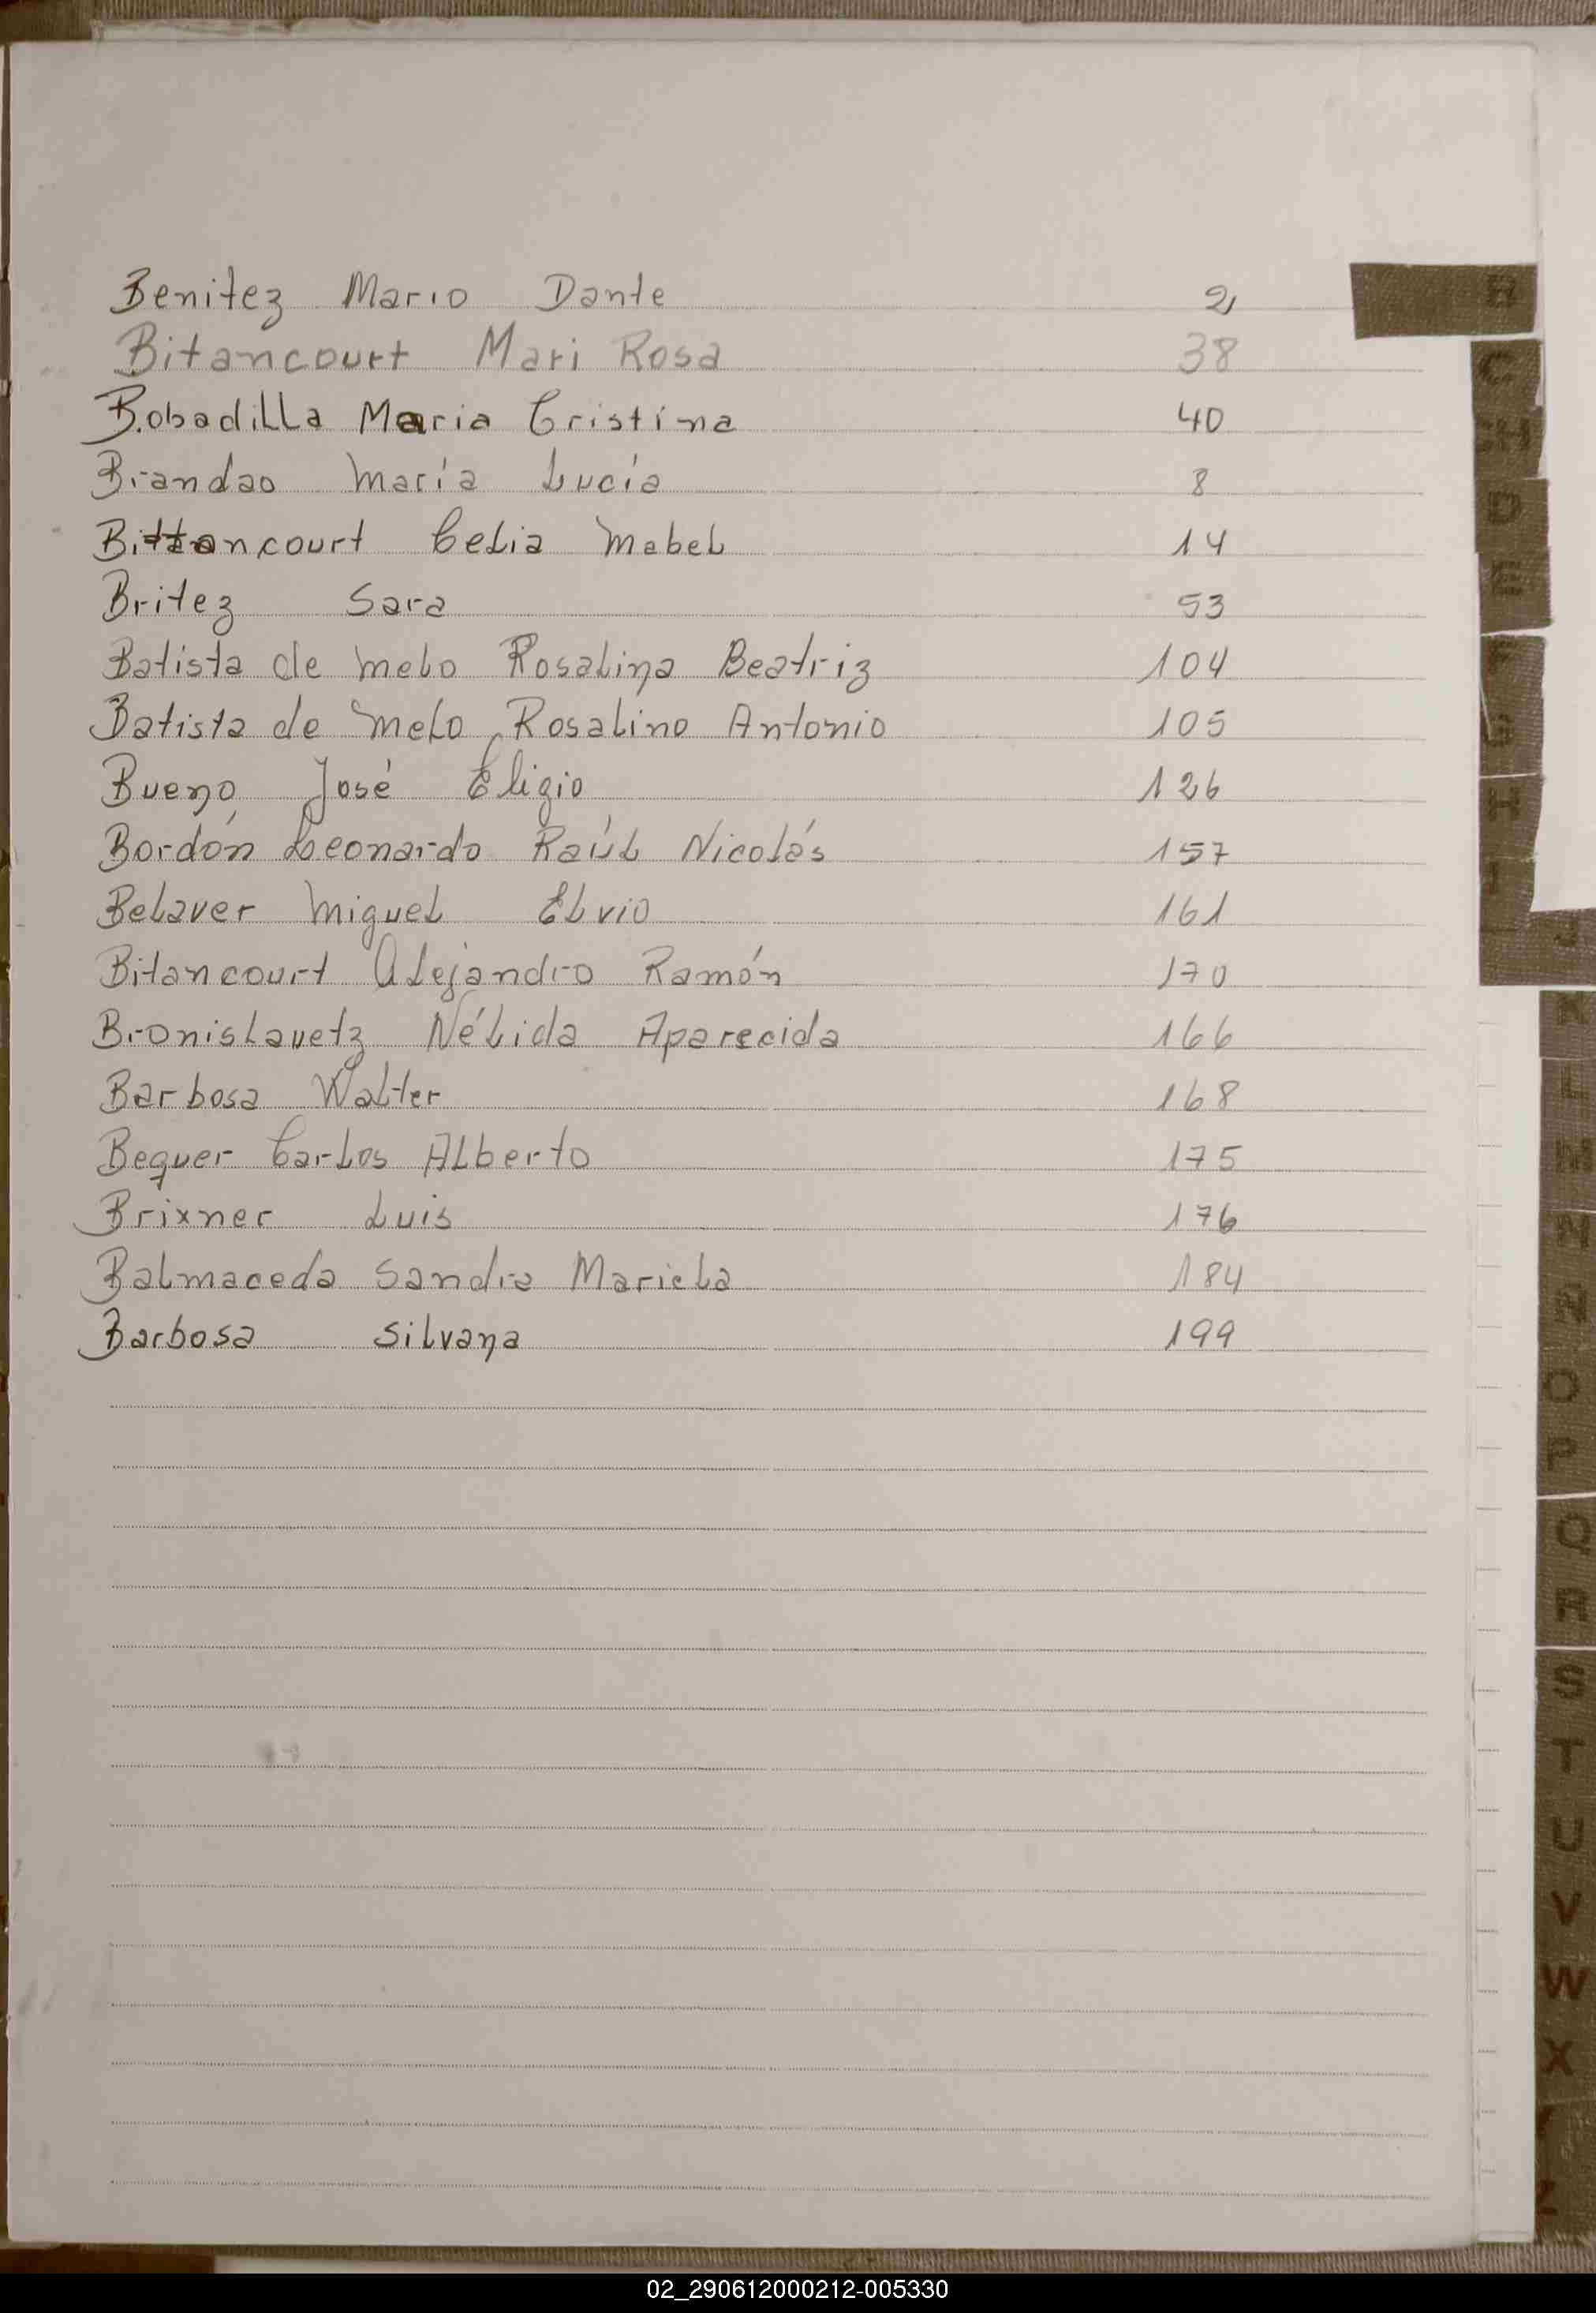 Benitez Mario Dante 2
Bitancourt Mari Rosa 38
Bobadilla Maria Cristina 40
Brandao María Lucía 8
Bittancourt Celia Mabel 14
Britez Sara 53
Batista de Melo Rosalina Beatriz 104
Batista de Melo Rosalino Antonio 105
Bueno José Eligio 126
Bordón Leonardo Raúl Nicolás 157
Belaver Miguel Elvio 161
Bitancourt Alejandro Ramón 170
Bronislavetz Nélida Aparecida 166
Barbosa Walter 168
Bequer Carlos Alberto 175
Brixner Luis 176
Balmaceda Sandra Mariela 184
Barbosa Silvana 199
C
CH
D
E
F
G
H
I
J
K
L
M
N
Ñ
O
P
Q
R
S
T
U
V
W
X
Z
02_290612000212-005330